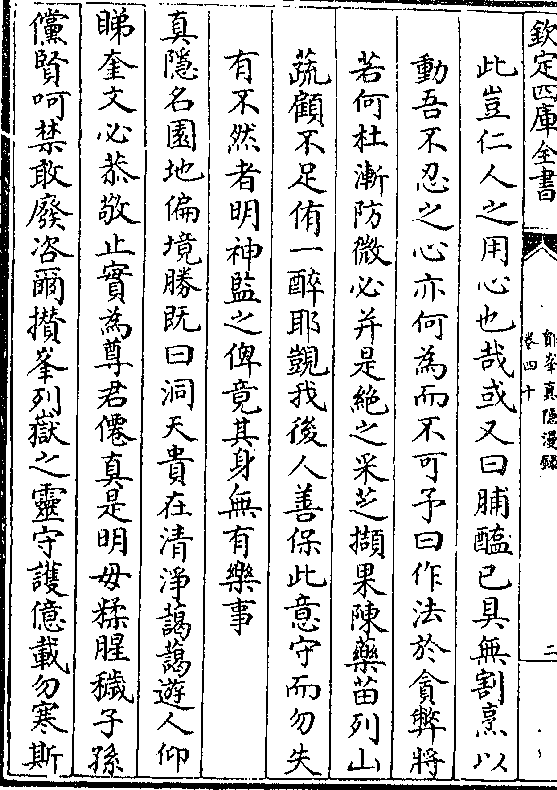 欽定四庫全書
鄮峯真隱漫錄
卷四十
二
此豈仁人之用心也哉或又曰脯醢已具無割烹以
動吾不忍之心亦何為而不可予曰作法於貪弊將
若何杜漸防微必并是絶之采芝擷果陳藥苗列山
蔬顧不足侑一醉耶覬我後人善保此意守而勿失
有不然者明神監之俾竟其身無有樂事
真隠名園地偏境勝既曰洞天貴在清淨藹藹遊人仰
睇奎文必恭敬止實為尊君僊真是明毋糅腥穢子孫
儻賢呵禁敢廢咨爾攅峯列嶽之靈守護億載勿寒斯